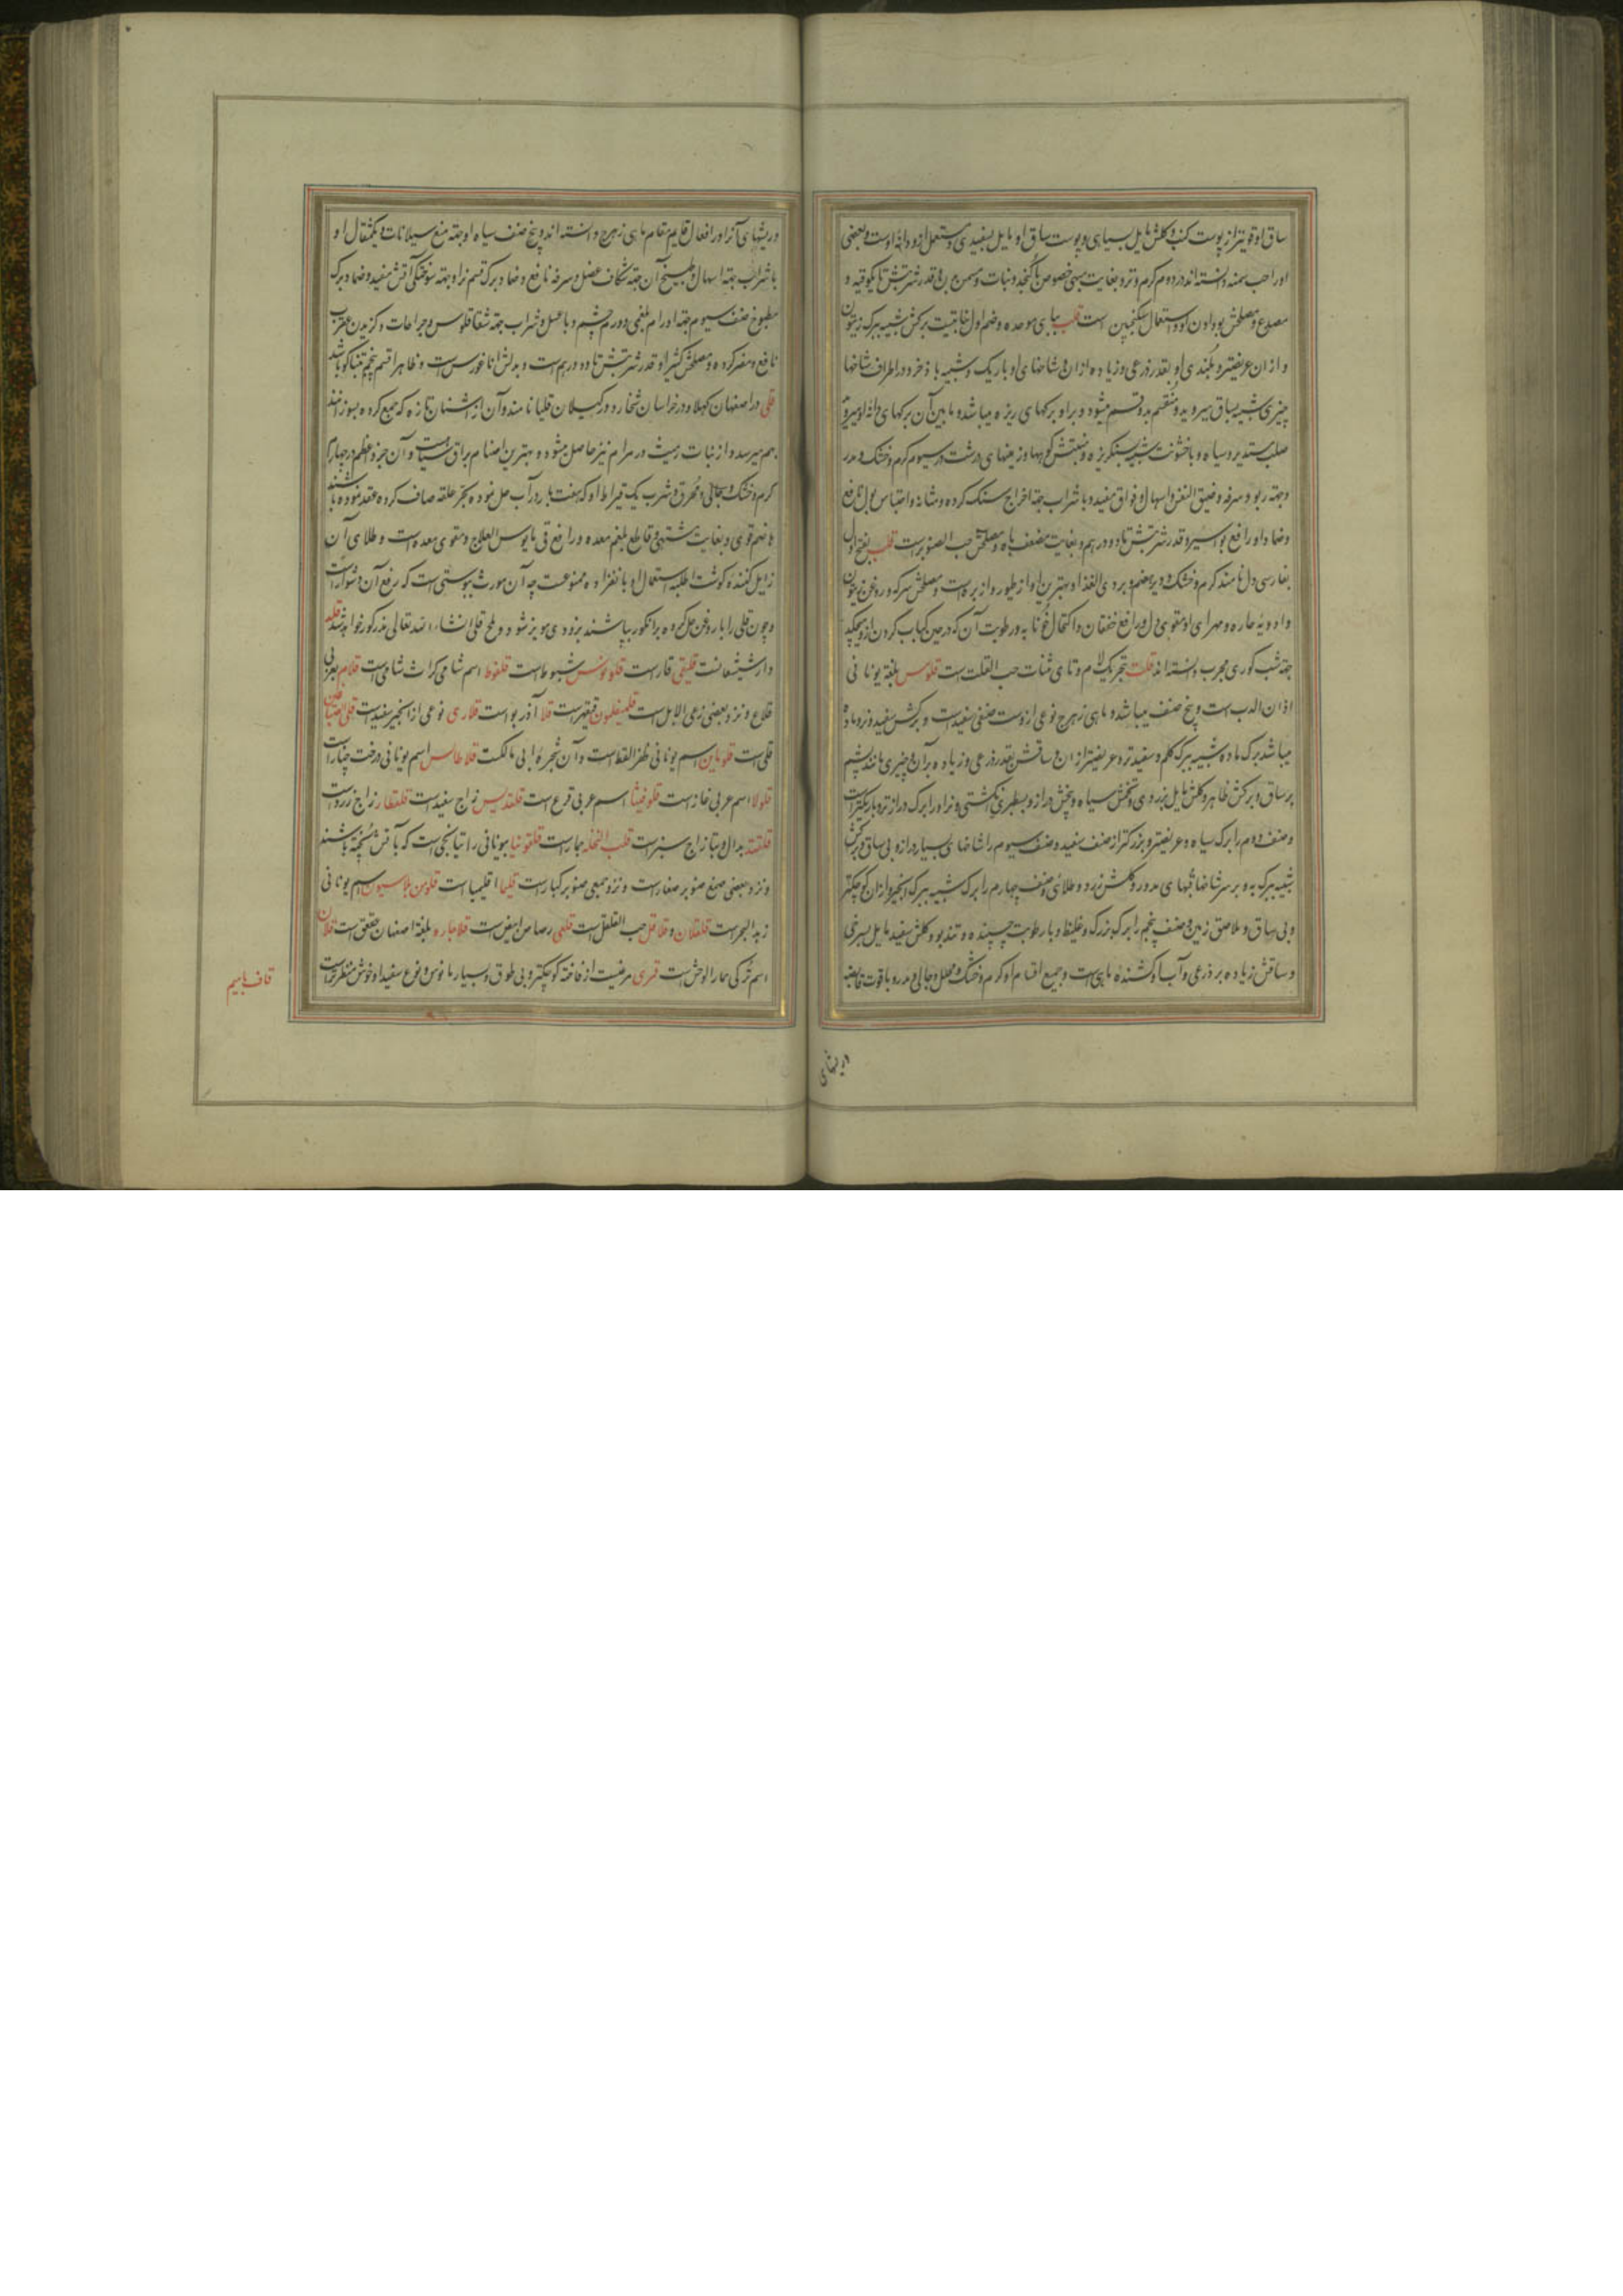 ساق او قویتر از پوست کنب و کلش مایل بسیاهی و پوست ساق او مایل بسفیدی و مستعمل ازو دانه اوست و بعضی
او را حب سمنه دانسته‌اند در دوم کرم و تر و بغایت مبهی خصوص با کنجد و نبات و مسمن بدن و قدر شربتش تا یکوقیه و
مصدع و مصلحش بو دادن او و استعمال سکنجبین است قلب ببای موحده و ضم اول نباتیست برکش شبیه ببرک زیتون
و از ان عریضتر و بلندی او بقدر ذرعی و زیاده از ان و شاخهای او باریک و شبیه باذخر و در اطراف شاخها
چیزی شبیه بساق میروید و منقسم بدو قسم میشود و بر او برکهای ریزه میباشد و ما بین آن برکهای دانه او میروید
صلب مستدیر و سیاه و با خشونت شبیه بسنکریزه و منبتش کوهها و زمینهای درشت در سیوم کرم و خشک و مدر
و جهة ربو و سرفه و ضیق النفس و اسهال و فواق مفید و با شراب جهة اخراج سنک کرده و مثانه و احتباس بول نافع
و ضماد او رافع بواسیر و قدر شربتش تا دو درهم و بغایت مضعف باه و مصلحش حب الصنوبر است قلب بفتح اول
بفارسی دل نامند کرم و خشک و دیر هضم و ردی الغذا و بهترین او از طیور و از بره است و مصلحش سرکه و روغن زیتون
و ادویه حاره و مهرای او مقوی دل و رافع خفقان و اکتحال خونابه و رطوبت آن که در حین کباب کردن ازو میچکد
جهة شب کوری مجرب دانسته‌اند قلت بتحریک لام و تای مثنات حب القلت است قلومس بلغة یونانی
اذان الدب است و پنج صنف میباشد و ماهی زهرج نوعی ازوست صنفی سفید است و برکش سفید و نر و ماده
میباشد برک ماده شبیه ببرک کلم و سفیدتر و عریضتر از ان و ساقش بقدر ذرعی و زیاده بر آن و چیزی مانند پشم
بر ساق و برکش ظاهر و کلش مایل بزردی و تخمش سیاه و بیخش دراز و بسطبری انکشتی و نر او را برک دراز تر و باریکتر است
و صنف دوم را برک سیاه و عریضتر و بزرکتر از صنف سفید و صنف سیوم را شاخهای بسیار دراز و بی ساق و برکش
شبیه ببرک به و بر سر شاخها قبهای مدور و کلش زرد و طلائی و صنف چهارم را برک شبیه ببرک انجیر و از ان کوچکتر
و بی ساق و ملاصق زمین و صنف پنجم را برک بزرک و غلیظ و با رطوبت چسپنده و تند بو و کلش سفید مایل بسرخی
و ساقش زیاده بر ذرعی و آب او کشنده ماهی است و جمیع اقسام او کرم و خشک و محلل و جالی و مدر و با قوت قابضه
و ریشهای
و ریشهای آنرا در افعال قایم مقام ماهی زهرج دانسته‌اند و بیخ صنف سیاه او جهة منع سیلانات و یکمثقال او
با شراب جهة اسهال و طبیخ آن جهة شکاف عضل و سرفه نافع و ضماد برک قسم نر او جهة سوختکی آتش مفید و ضماد برک
مطبوخ صنف سیوم جهة اورام بلغمی و ورم چشم و با عسل و شراب جهة شقاقلوس و جراحات و کزیدن عقرب
نافع و مضر کرده و مصلحش کثیرا و قدر شربتش تا دو درهم است و بدلش انا غورس است و ظاهرا قسم پنجم تنباکو باشد
قلی در اصفهان کهلا و در خراسان شخار و در کیلان قلیا نامند و آن از اشنان تازه که جمع کرده بسوزانند
بهم میرسد و از نبات رمیث و سرام نیز حاصل میشود و بهترین اصنام براق سیاهست و آن جزو اعظم در چهارم
کرم و خشک و جالی و محرق و شرب یک قیراط او که هفت بار در آب حل نموده بجر علقه صاف کرده عقد نموده باشند
هاضم قوی و بغایت مشتهی و قاطع بلغم معده و رافع قی مایوس العلاج و مقوی معده است و طلای آن
زایل کننده کوشت اطلبه استعمال او بانفراده ممنوعست چه آن مورث یبوستی است که رفع آن دشوار است
و چون قلی را با روغن حل کرده بر انکور بپاشند بزودی مویز شود و ملح قلی انشاء الله تعالی مذکور خواهد شد قلنبد
دارشیشعانست قلیقی قار است قلومونس شبوط است قلفوط اسم شامی کراث شامی است قلام بعربی
قلاع و نزد بعضی رعی الابل است قلمیغلمون قیقهر است قلا آذربو است قلاری نوعی از انجیر سفید است قلی الصباغین
قلی است قلوماین اسم یونانی ظفر القط است و آن شجره ابی مالکست قلاطالس اسم یونانی درخت چنار است
قلولا اسم عربی خاز است قلوفیثا اسم عربی قرع است قلقدیس زاج سفید است قلقطار زاج زرد است
قلقند بدال و بتا زاج سبز است قلب النخله جمار است قلقونیا بیونانی راتیانجی است که بآتش پخته باشند
و نزد بعضی صمغ صنوبر صغار است و نزد جمعی صنوبر کبار است قلیمیا اقلیمیا است قلومن بلاسیون اسم یونانی
زبد البحر است قلقلان و قلاقل حب القلقل است قلعی رصاص ابیض است قلاجاره بلغة اصفهان عقعق است قلان
اسم ترکی حمار الوحش است قمری مرغیست از فاخته کوچکتر و بی طوق و بسیار مانوس و نوع سفید او خوش منظر تر است
قاف با میم